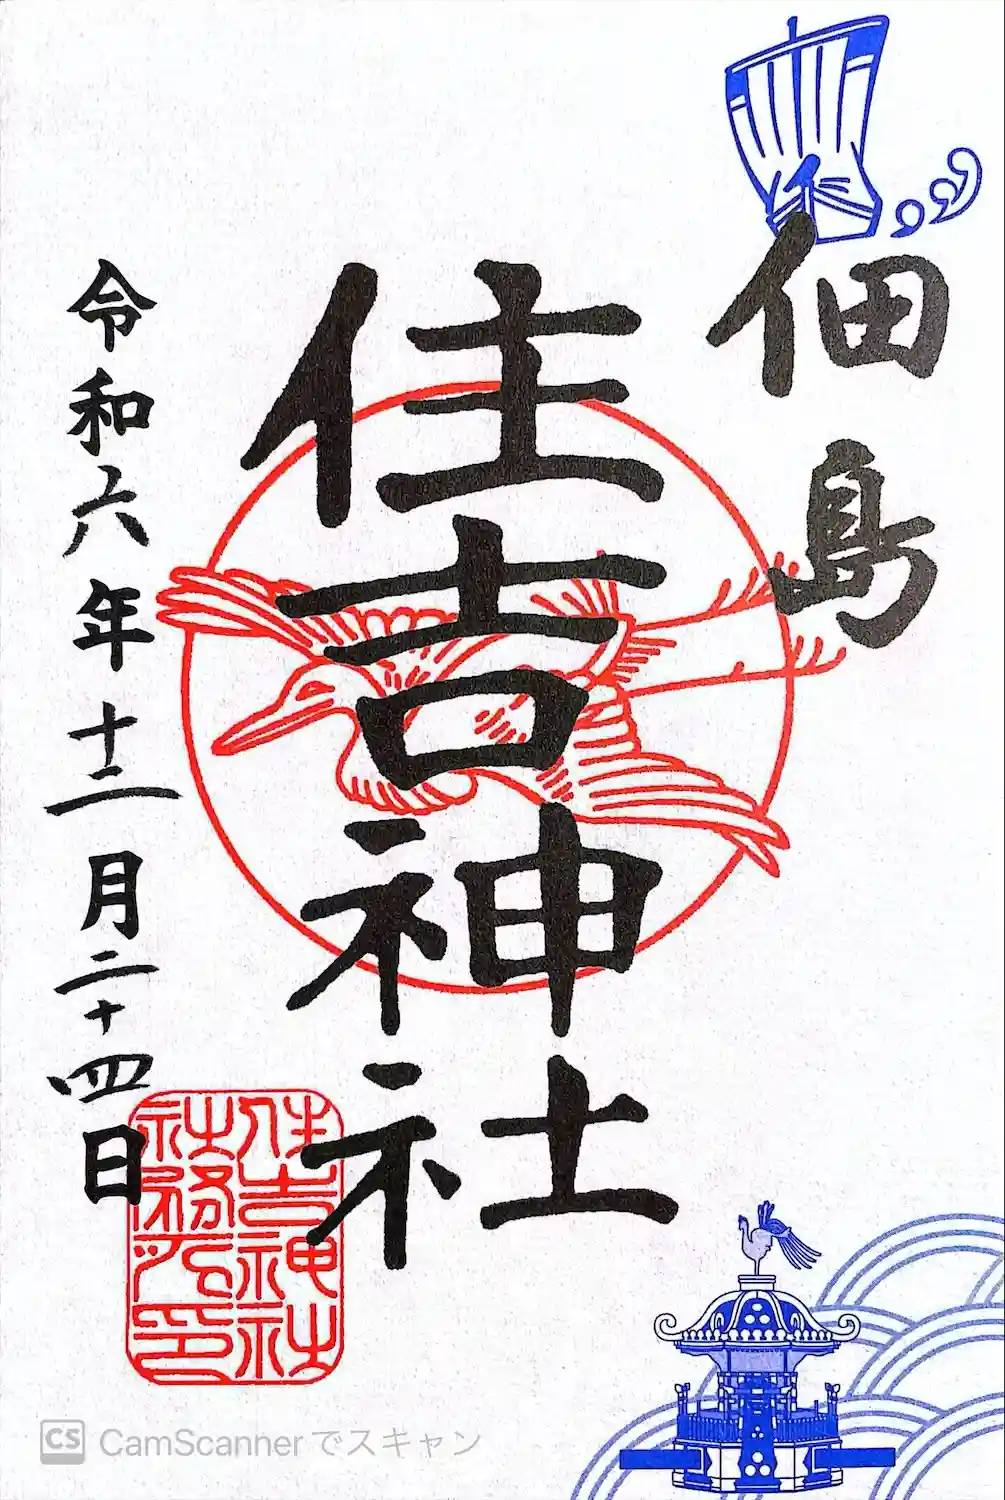 佃島
住吉神社
令和六年十二月二十四日
住吉神社
社務所印
CS CamScannerでスキャン